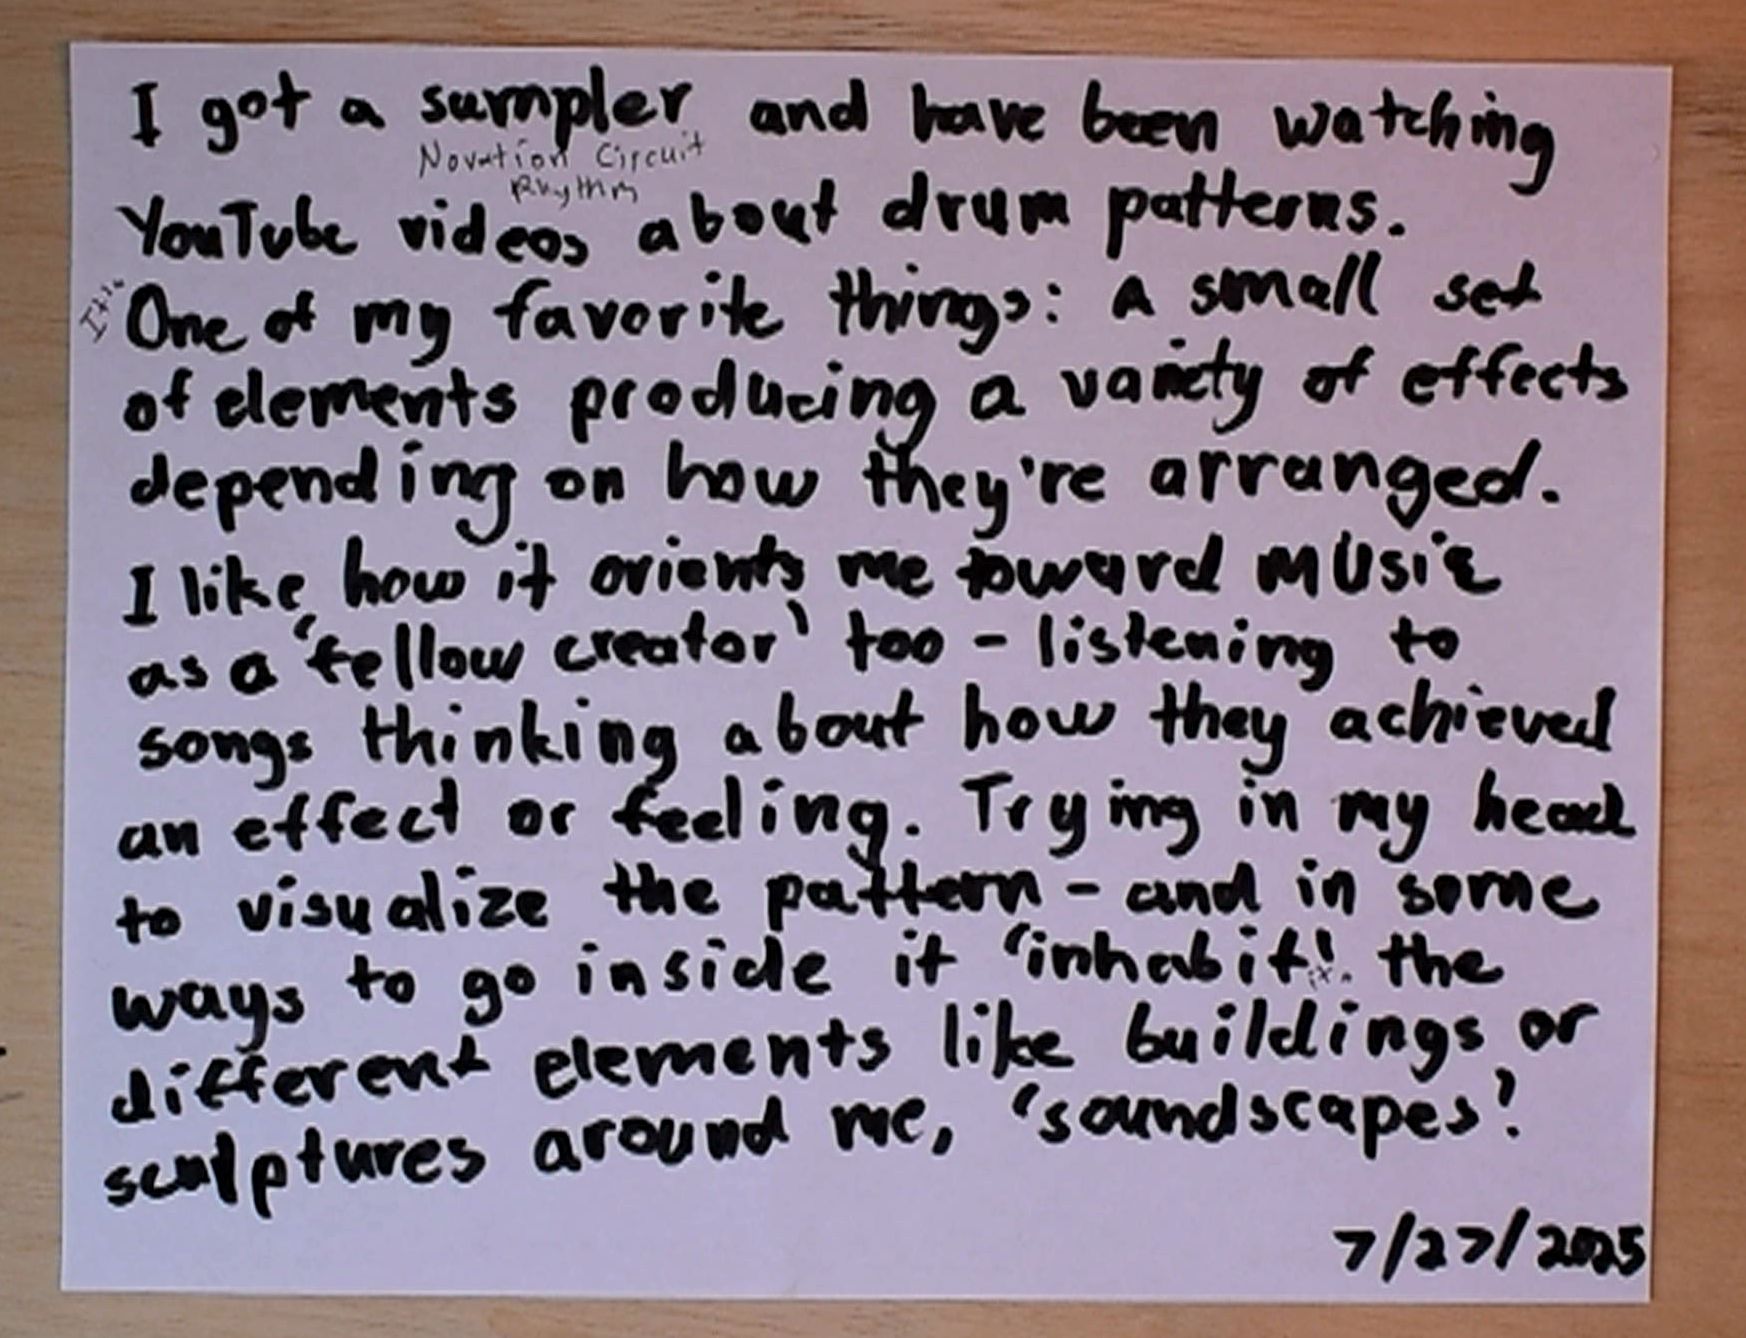 I got a sampler and have been watching
Novation Circuit
Rhythm
YouTube videos about drum patterns.
It's
One of my favorite things: A small set
of elements producing a variety of effects
depending on how they're arranged.
I like how it orients me toward music
as a 'fellow creator' too - listening to
songs thinking about how they achieved
an effect or feeling. Trying in my head
to visualize the pattern - and in some
ways to go inside it 'inhabit'. the
different elements like buildings or
sculptures around me, 'soundscapes'.
7/27/2025